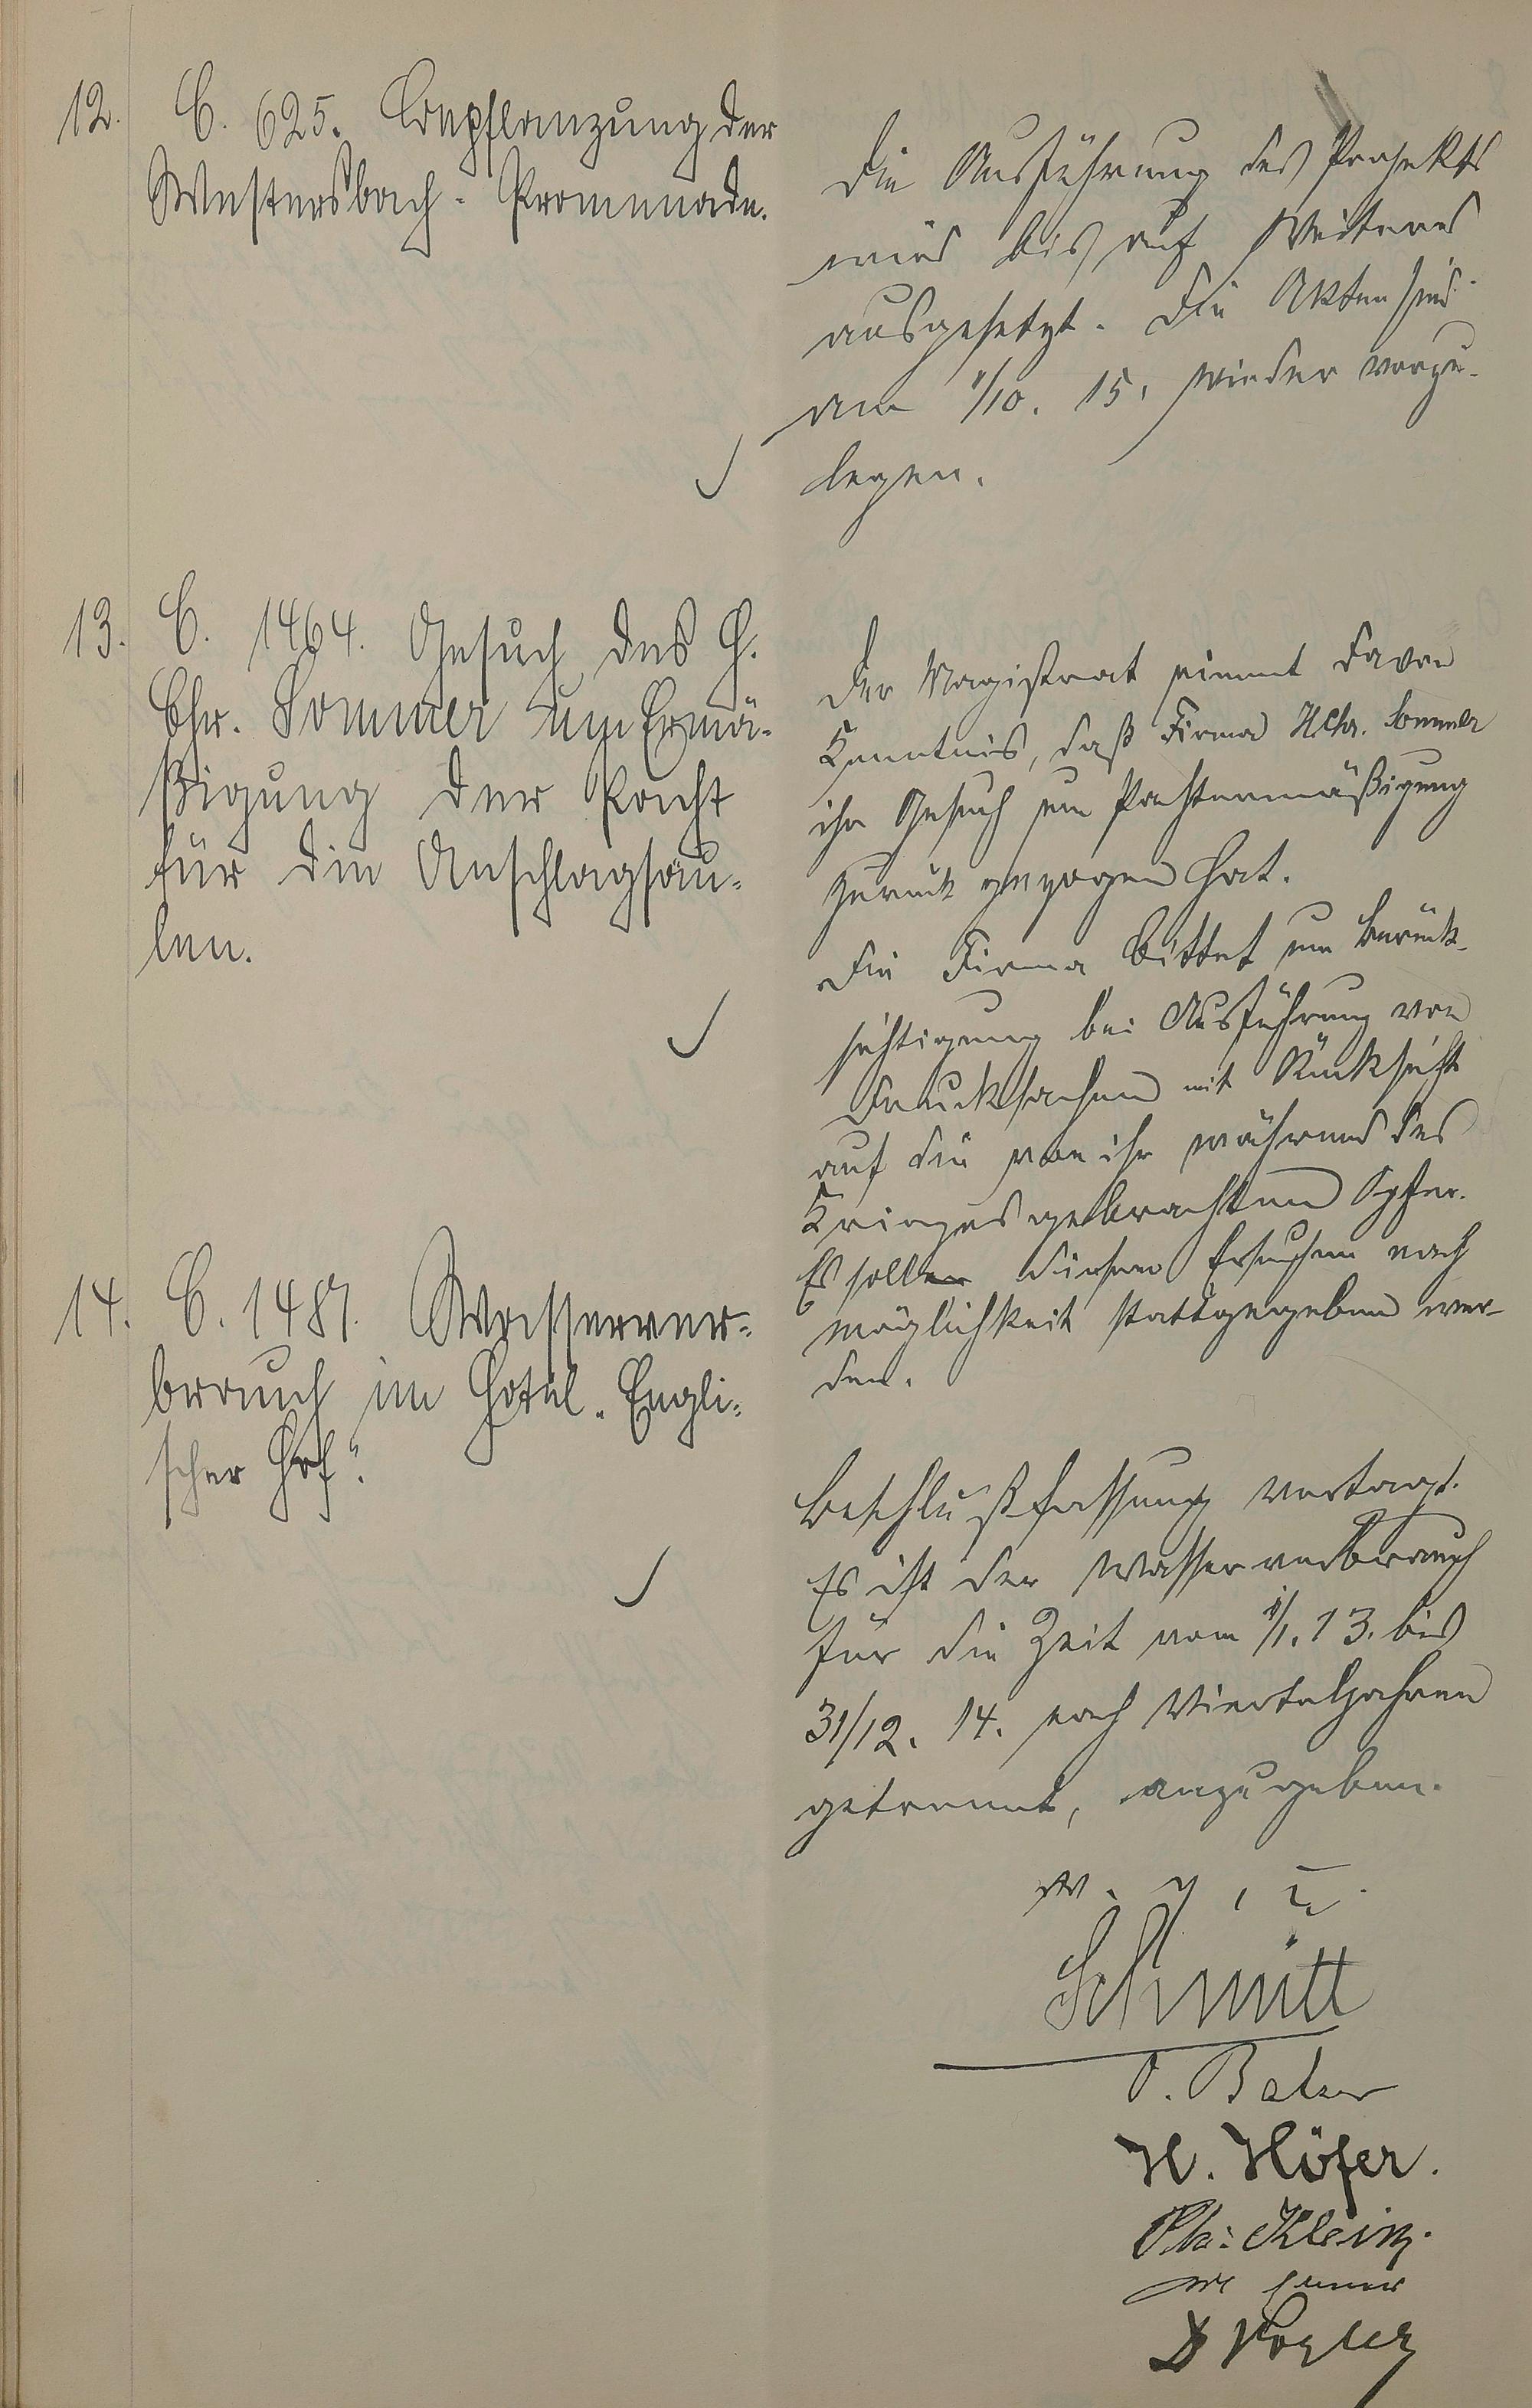 12. C. 625. Bepflanzung der
Westersbach-Promenade.
Die Ausführung des Projekts
wird bis auf Weiteres
ausgesetzt. Die Akten sind
am 1/10. 15. wieder vorzu-
legen.
13. C. 1464. Gesuch des H.
Chr. Sommer um Ermä-
ßigung der Pacht
für die Anschlagsäu-
len.
Der Magistrat nimmt davon
Kenntnis, daß Firma H Chr. Sommer
ihr Gesuch um Pachtermäßigung
zurück gezogen hat.
Die Firma bittet um Berück-
sichtigung bei Ausführung von
Drucksachen mit Rücksicht
auf die von ihr während des
Krieges gebrachten Opfer.
Es soll diesem Ersuchen nach
Möglichkeit stattgegeben wer-
den.
14. C. 1487. Wasserver-
brauch im Hotel „Engli-
scher Hof“.
Beschlußfassung vertagt.
Es ist der Wasserverbrauch
für die Zeit vom 1/1. 13. bis
31/12. 14. nach Vierteljahren
getrennt, anzugeben.
v. g. u.
Schmitt
O. Balser
H. Höfer.
Ph: Klein.
D Vogler